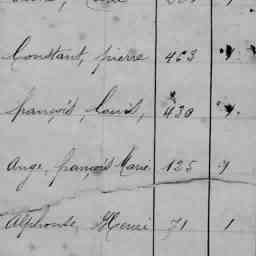 Constant, pierre 463 9
françois, Louis, 430 9
Ange, françois Marie 125 9
Alphonse, Henri 71 1